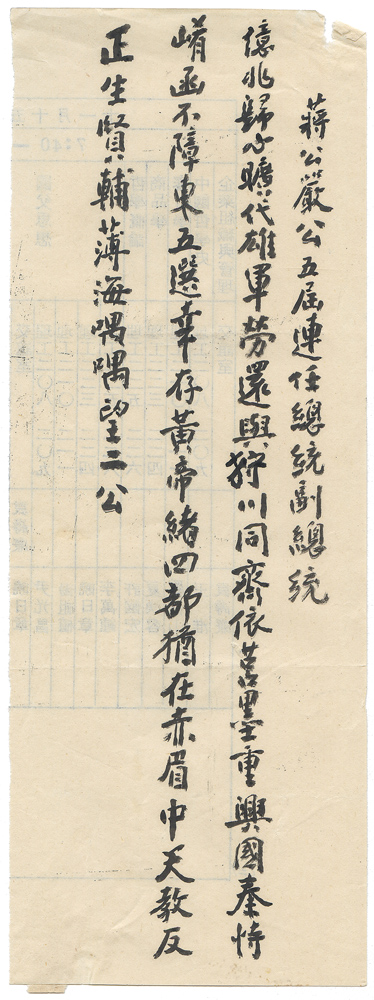 蔣公嚴公五屆連任總統副總統
億兆歸心曠代雄軍勞還與狩川同齊依莒墨重興國秦恃
崤函不障東五選幸存黃帝緒四部猶在赤眉中天教反
正生賢輔薄海喁喁望二公